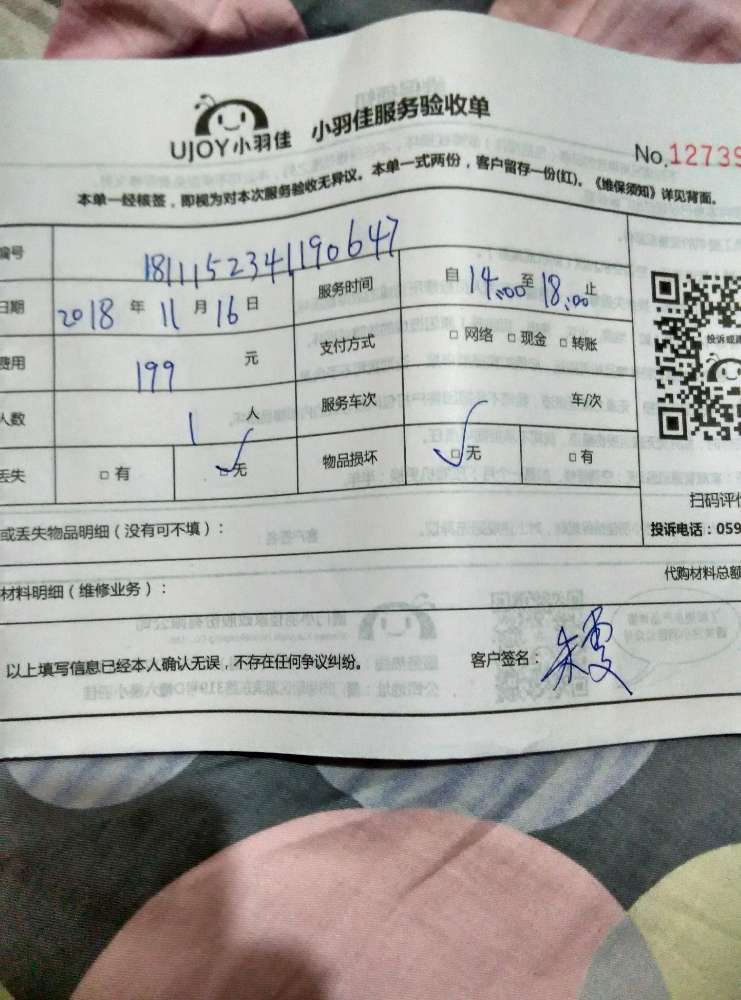 UJOY小羽佳 小羽佳服务验收单
No.12739
本单一经核签，即视为对本次服务验收无异议。本单一式两份，客户留存一份(红)。《维保须知》详见背面。
编号 1811152341190647
日期 2018 年 11 月 16 日 服务时间 自 14:00 至 18:00 止
费用 199 元 支付方式 □ 网络 □ 现金 □ 转账
人数 1 人 服务车次 车/次
丢失 □ 有 □ 无 物品损坏 □ 无 □ 有
投诉或
扫码评
或丢失物品明细（没有可不填）：
投诉电话：059
材料明细（维修业务）：
代购材料总额
以上填写信息已经本人确认无误，不存在任何争议纠纷。 客户签名：朱雯